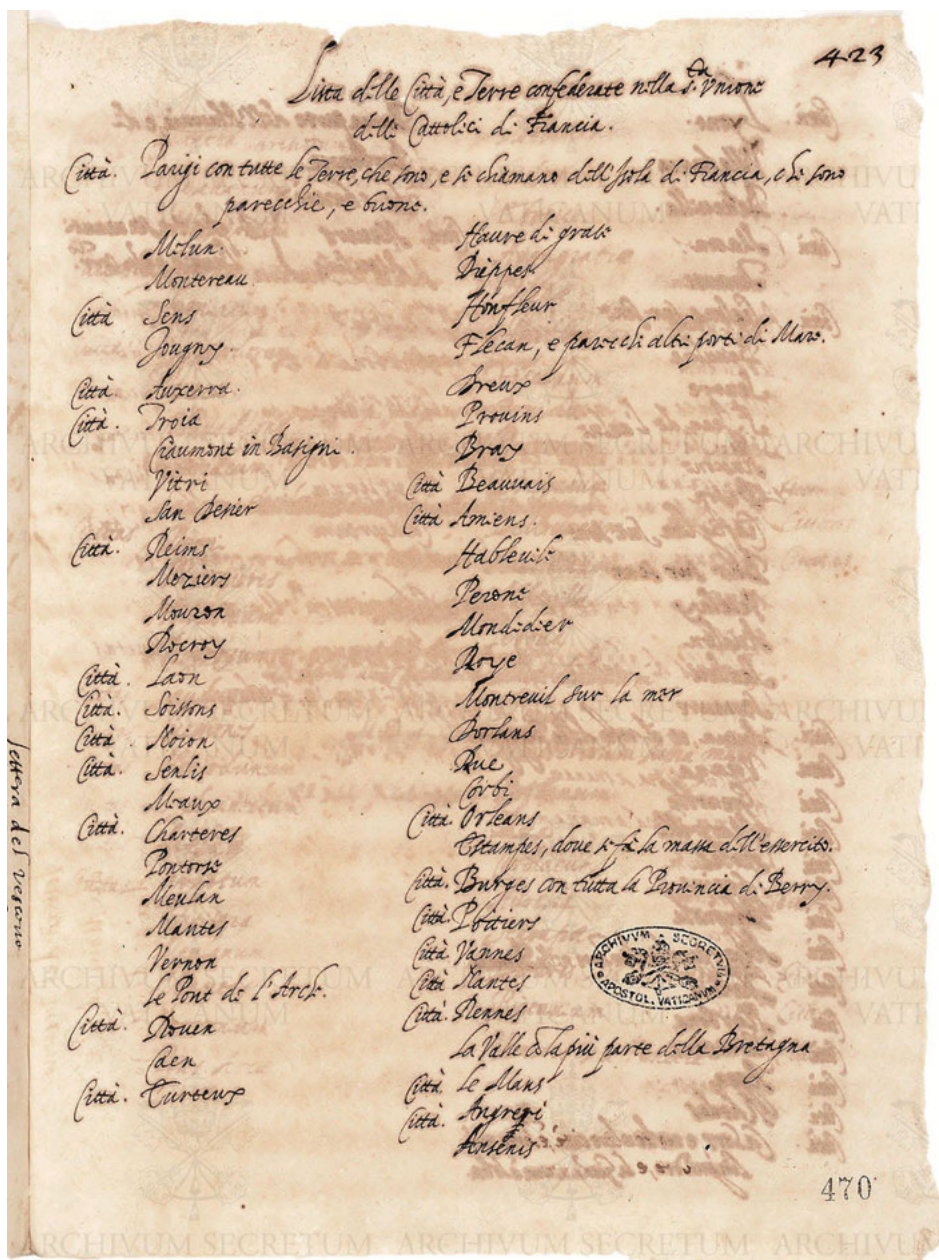 423
Lista delle Città, e Terre confederate nella S.ta Unione
delli Cattolici di Francia.
Città. Parigi con tutte le Terre, che sono, e se chiamano dell'Isola di Francia, che sono
parecchie, e buone.
Melun.
Montereau
Città Sens
Jougny.
Città. Auxerra.
Città. Troia
Ciaumont in Basigni.
Vitri
San Desier
Città. Reims
Meziers
Mouzon
Rocroy
Città. Laon
Città. Soissons
Città. Noion
Città. Senlis
Meaux
Città. Charteres
Pontorse
Meulan
Mantes
Vernon
Le Pont de l'Arche.
Città. Rouen
Caen
Città. Eureux
Haure de grace
Dieppes
Honfleur
Flecan, e parecchi altri porti di Mare.
Dreux
Prouins
Bray
Città Beauuais
Città Amiens.
Hableuile
Perone
Mondidier
Roye
Montreuil sur la mer
Dorlans
Rue
Corbi
Città. Orleans
Estampes, dove se fà la massa dell'essercito.
Città. Burges con tutta la Provincia di Berry.
Città Poitiers
Città Vannes
Città Nantes
Città. Rennes
La Valle et la più parte della Bretagna
Città. Le Mans
Città. Angregi
Ansenis
lettera del vescovo
ARCHIVVM SECRETVM APOSTOL. VATICANVM
470
ARCHIVUM SECRETUM VATICANUM